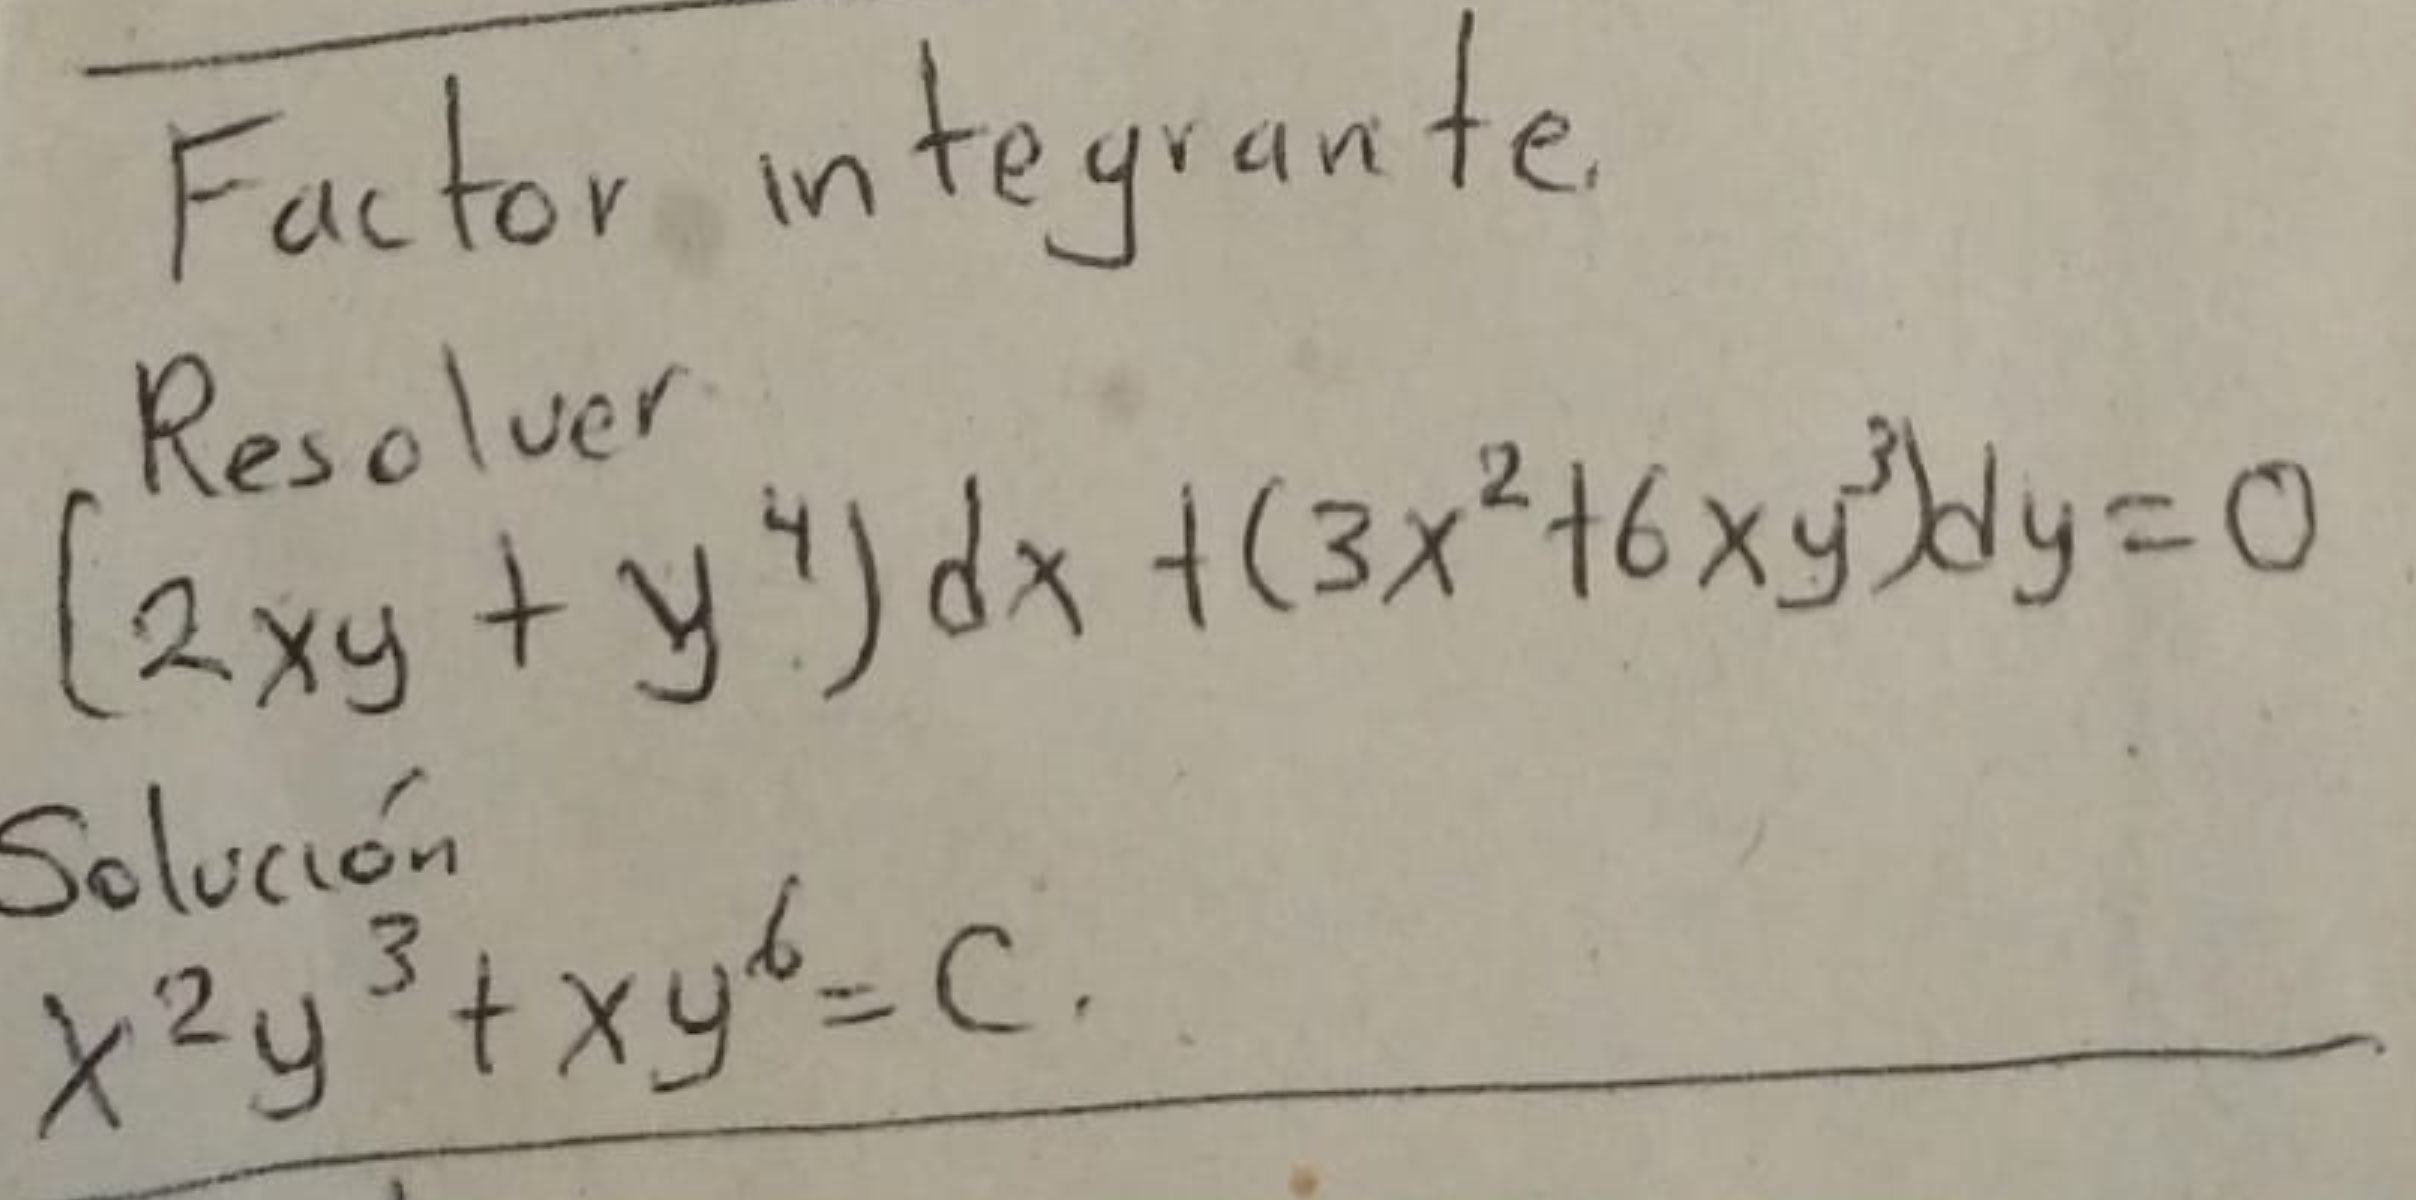 Factor integrante.
Resolver
(2xy + y⁴) dx + (3x² + 6xy³)dy = 0
Solución
x²y³ + xy⁶ = C.